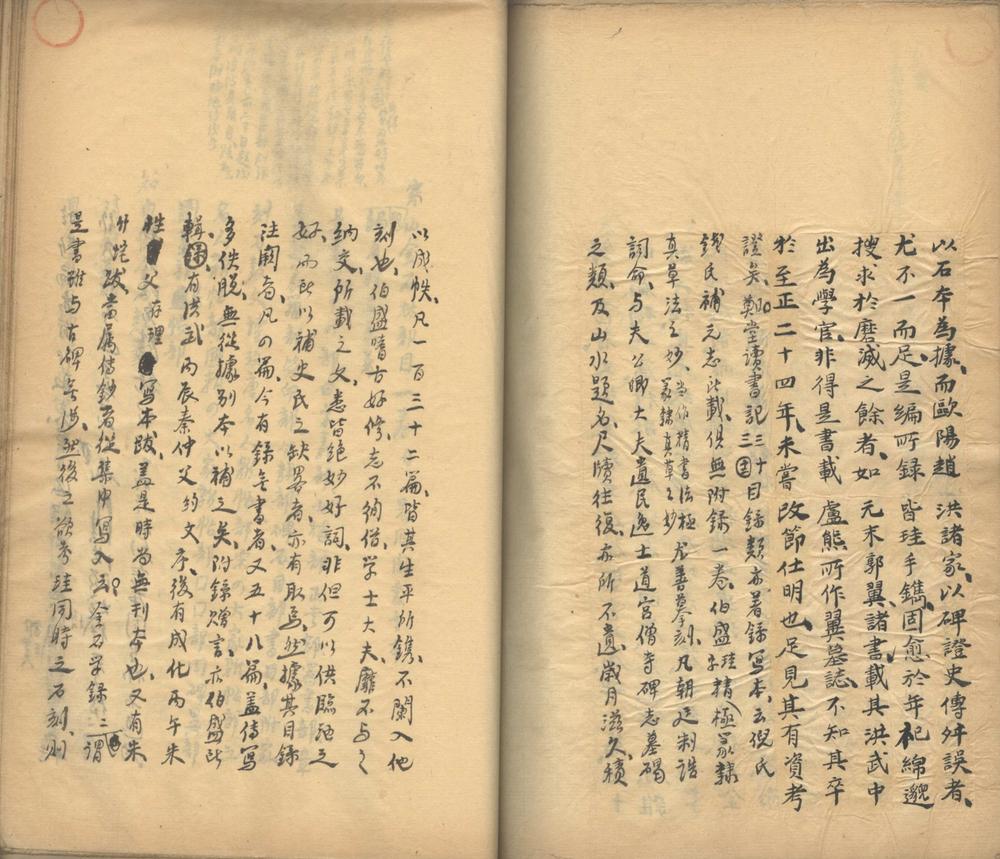 以石本為據、而歐陽趙洪諸家、以碑證史傳舛誤者、
尤不一而足、是編所錄皆珪手鐫、固愈於年祀綿邈
搜求於磨滅之餘者、如元末郭翼、諸書載其洪武中
出為學官、非得是書載盧熊所作翼墓誌、不知其卒
於至正二十四年、未嘗改節仕明也、足見其有資考
證矣、鄭堂讀書記三十三目錄類亦著錄寫本、云倪氏
錢氏補元志所載、俱無附錄一卷、伯盛珪字精極篆隸
真草法之妙、當作精書法極篆隸真草之妙尤善摹刻、凡朝廷制誥
詞命、与夫公卿大夫遺民逸士道宮僧寺碑志墓碣
之類、及山水題名尺牘往復、亦所不遺、歲月滋久、積
以成帙、凡一百三十二篇、皆其生平所鐫、不闌入他
刻也、伯盛嗜古好修、志不徇俗、学士大夫靡不与之
納交、所載之文、悉皆絕妙好詞、非但可以供臨池之
好、而所以補史氏之缺畧者、亦有取焉、然據其目錄
註闕者、凡の篇、今有錄無書者又五十八篇、蓋傳写
多佚脫、無從據別本以補之矣、附錄贈言、亦伯盛所
輯、有洪武丙辰秦仲父約文序、後有成化丙午朱
性父存理写本跋、盖是時尚無刊本也、又有朱
跋、當属傳鈔者從集中写入云、金石学錄二謂
是書雖与古碑無涉、然後之欲考珪同時之石刻、則